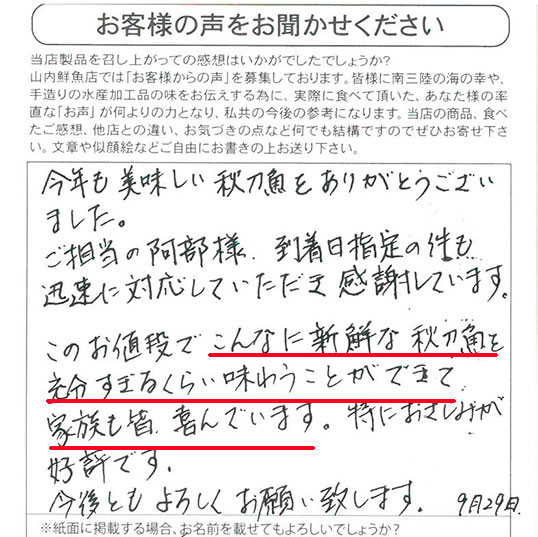 お客様の声をお聞かせください
当店製品を召し上がっての感想はいかがでしたでしょうか?
山内鮮魚店では「お客様からの声」を募集しております。皆様に南三陸の海の幸や、
手造りの水産加工品の味をお伝えする為に、実際に食べて頂いた、あなた様の率
直な「お声」が何よりの力となり、私共の今後の参考になります。当店の商品、食べ
たご感想、他店との違い、お気づきの点など何でも結構ですのでぜひお寄せ下さ
い。文章や似顔絵などご自由にお書きの上お送り下さい。
今年も美味しい秋刀魚をありがとうござい
ました。
ご担当の阿部様、到着日指定の件も
迅速に対応していただき感謝しています。
このお値段でこんなに新鮮な秋刀魚を
充分すぎるくらい味わうことができて
家族も皆、喜んでいます。特におさしみが
好評です。
今後ともよろしくお願い致します。 9月29日.
※紙面に掲載する場合、お名前を載せてもよろしいでしょうか?